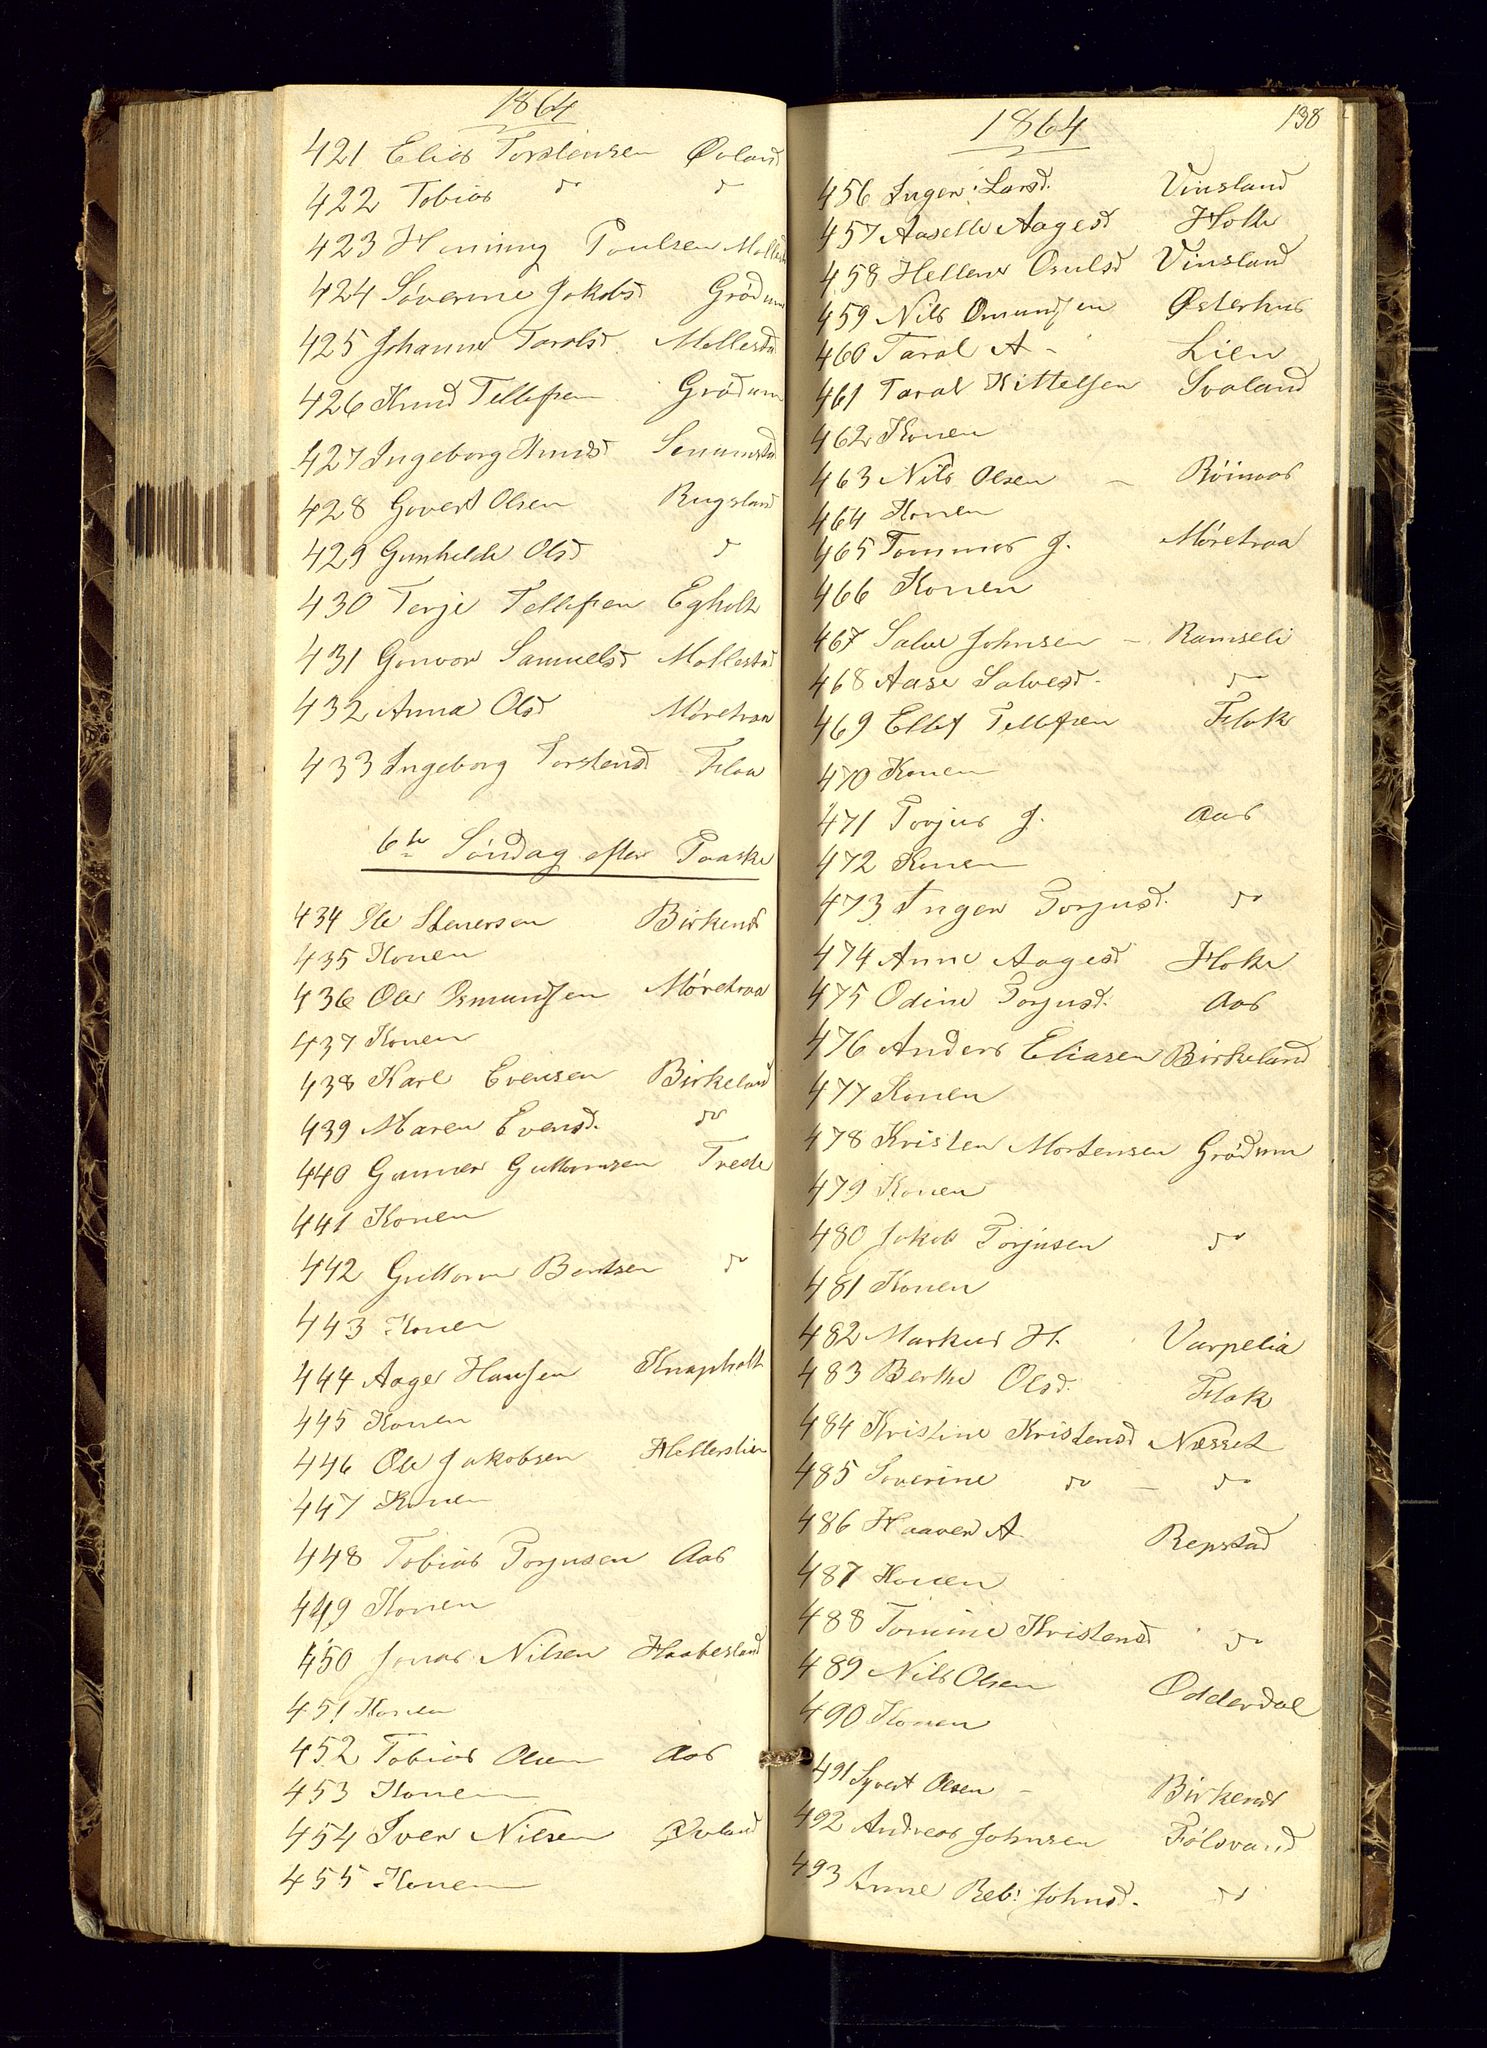 1864
421 Elias Torstensen Øvland
422 Tobias do do
423 Henning Poulsen Mollesta
424 Söverine Jakobsd Grödum
425 Johanne Taralsd Mollesta
426 Knud Tellefsen Grödum
427 Ingeborg Knudsd Senumsta
428 Govert Olsen Rugsland
429 Gunhilde Olsd do
430 Terje Tellefsen Egholt
431 Gonvor Samuelsd Mollestad
432 Anna Olsd Møretraa
433 Ingeborg Torstensd Flaa
6te Søndag efter Paaske
434 Ole Stenersen Birkenes
435 Konen
436 Ole Osmundsen Møretraa
437 Konen
438 Karl Evensen Birkeland
439 Maren Evensd. do
440 Gunner Guttormsen Trede
441 Konen
442 Guttorm Bentsen do
443 Konen
444 Aage Hansen Knapholt
445 Konen
446 Ole Jakobsen Hellerslien
447 Konen
448 Tobias Torjusen Aas
449 Konen
450 Jonas Nilsen Haabesland
451 Konen
452 Tobias Olsen Aas
453 Konen
454 Iver Nilsen Øvland
455 Konen
1864 138
456 Inger Larsd. Vinsland
457 Aaselle Aagesd Flakke
458 Hellene Osulsd Vinsland
459 Nils Omundsen Østerhus
460 Taral A - Lien
461 Taral Kittelsen Svaland
462 Konen
463 Nils Olsen - Röinaas
464 Konen
465 Tommas J. Møretraa
466 Konen
467 Salve Johnsen - Ramseli
468 Aase Salvesd. do
469 Ellef Tellefsen Flak
470 Konen
471 Torjus J. Aas
472 Konen
473 Inger Torjusd. do
474 Anne Aagesd Flakke
475 Odine Torjusd. Aas
476 Anders Eliasen Birkeland
477 Konen
478 Kristen Mortensen Grödum
479 Konen
480 Jakob Torjusen do
481 Konen
482 Markus H. Varpelia
483 Berthe Olsd. Flak
484 Kristine Kristensd Næsset
485 Soverine do - do
486 Haaver A. Repstad
487 Konen
488 Tomine Kristensd do
489 Nils Olsen Odderdal
490 Konen
491 Syvert Olsen - Birkenes
492 Andreas Johnsen Fölsvand
493 Anne Reb: Johnsd. do